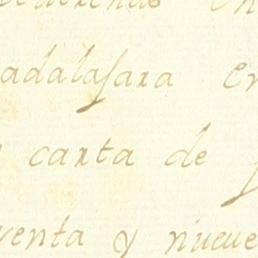 adalajara en
carta de
venta y nueve